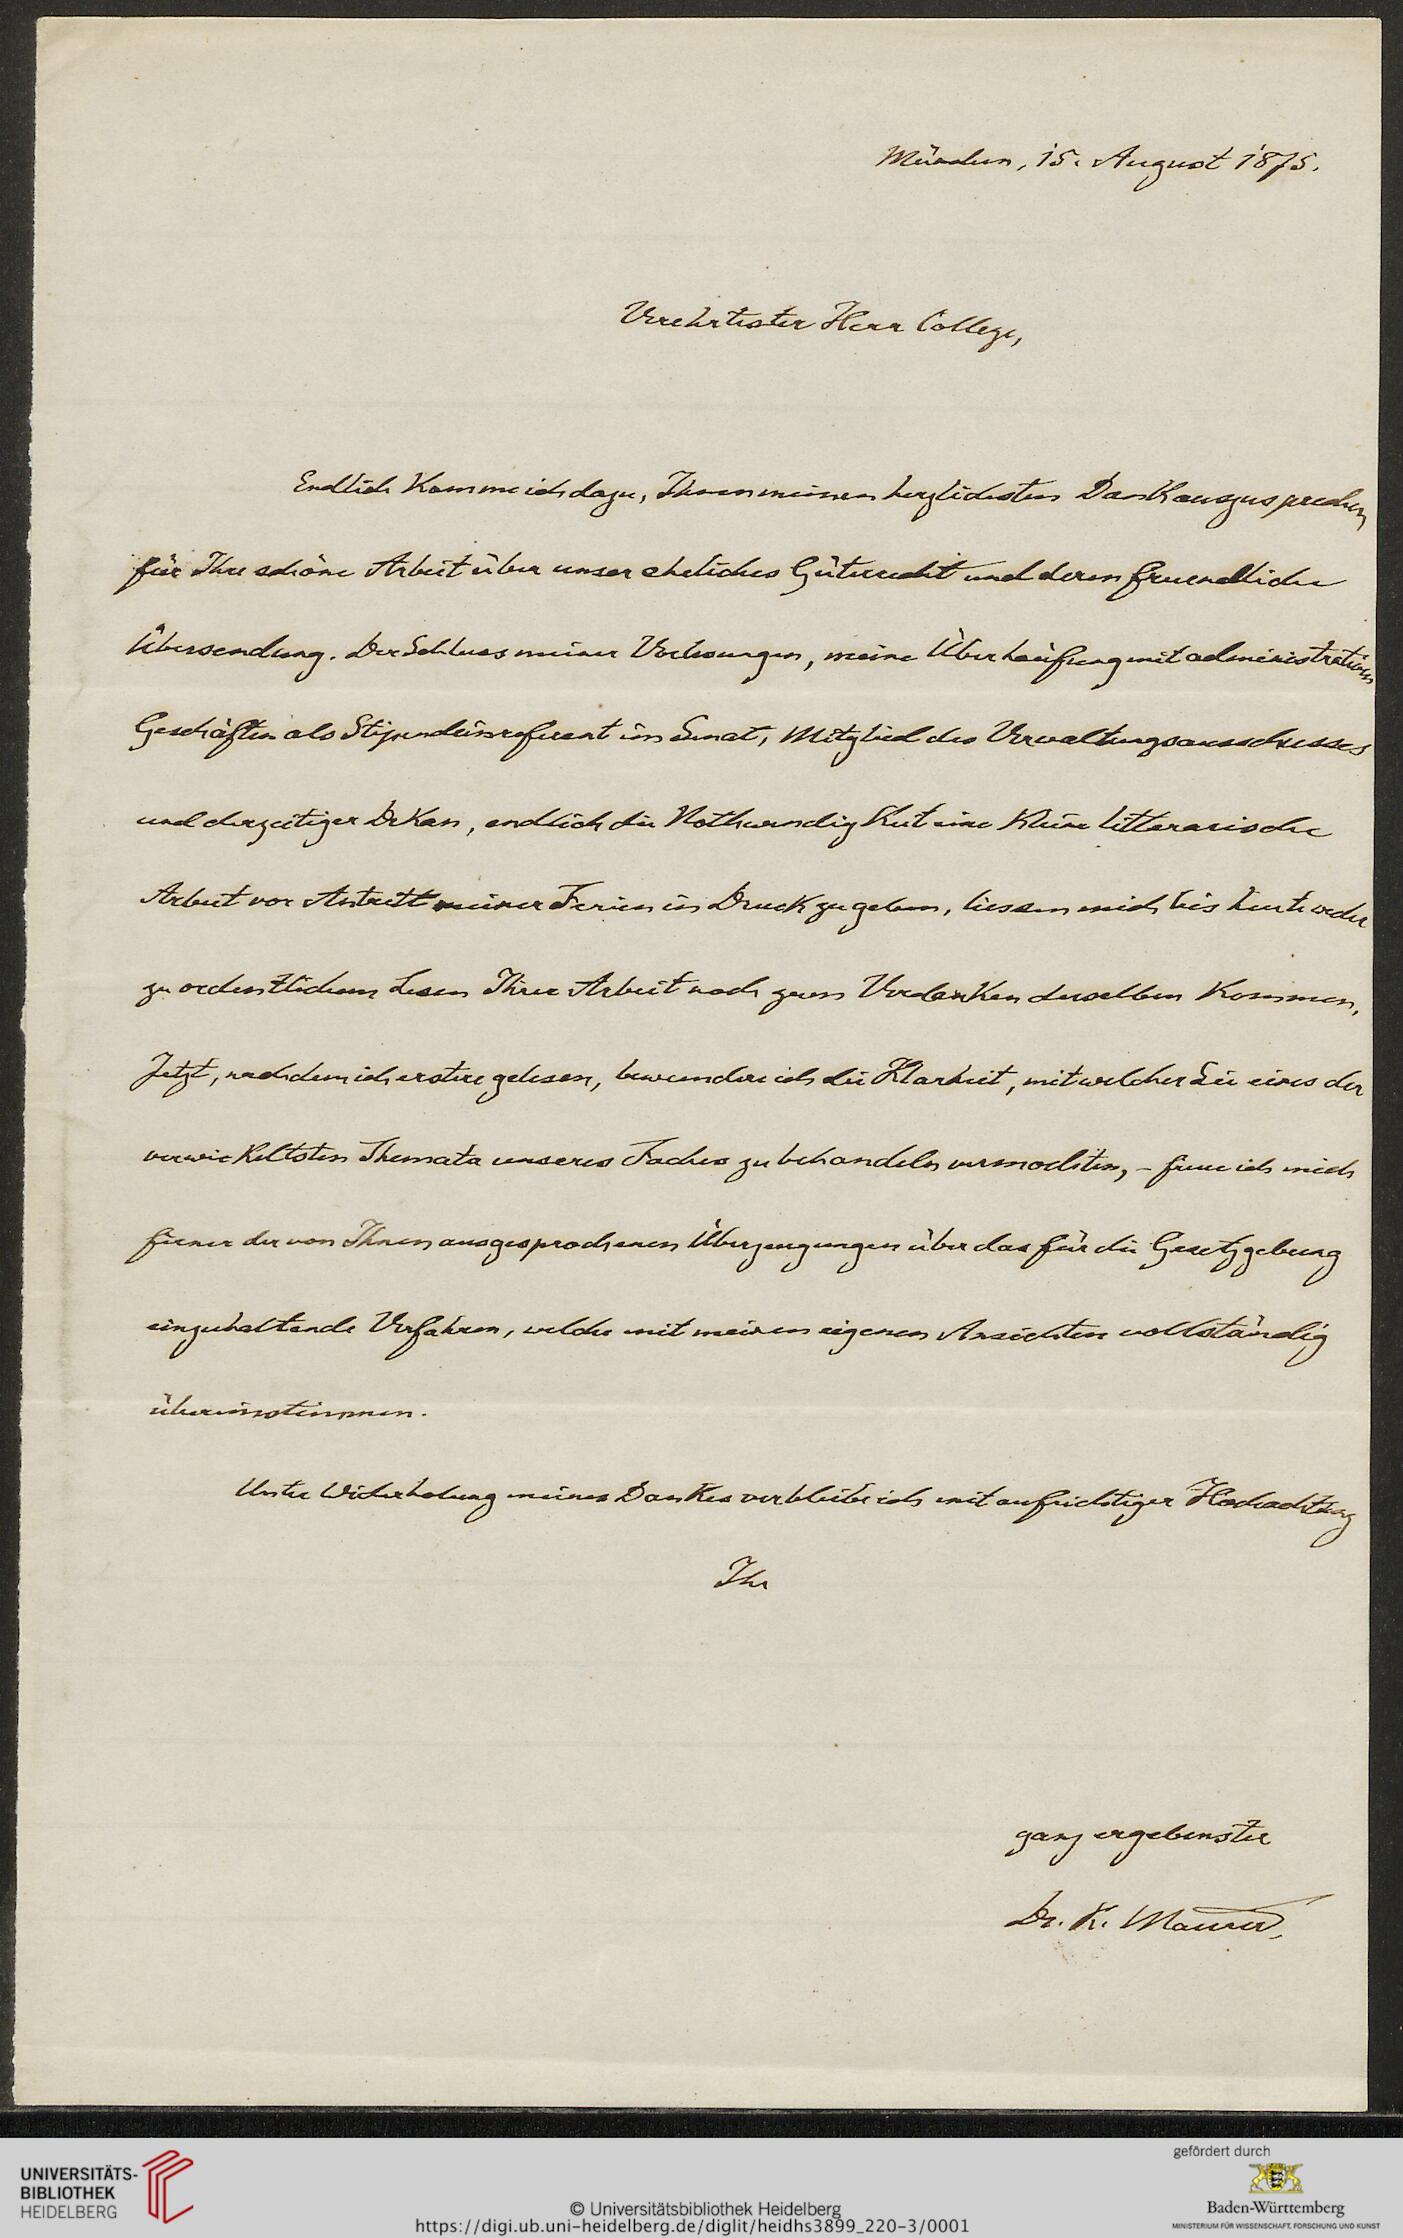 München, 15. August 1875.
Verehrtester Herr College,
Endlich komme ich dazu, Ihnen meinen herzlichsten Dank auszusprechen
für Ihre schöne Arbeit über unser eheliches Güterrecht und deren freundliche
Übersendung. Der Schluss meiner Vorlesungen, meine Überhäufung mit administrativen
Geschäften als Stipendienreferent im Senat, Mitglied des Verwaltungsausschusses
und derzeitiger Dekan, endlich die Nothwendigkeit eine kleine litterarische
Arbeit vor Antritt meiner Ferien in Druck zu geben, liessen mich bis heute weder
zu ordentlichem Lesen Ihrer Arbeit noch zum Verdanken derselben kommen.
Jetzt, nachdem ich erstere gelesen, bewundere ich die Klarheit, mit welcher Sie eines der
verwickeltsten Themata unseres Faches zu behandeln vermochten, – freue ich mich
ferner der von Ihnen ausgesprochenen Überzeugungen über das für die Gesetzgebung
einzuhaltende Verfahren, welche mit meinen eigenen Ansichten vollständig
übereinstimmen.
Unter Widerholung meines Dankes verbleibe ich mit aufrichtiger Hochachtung
Ihr
ganz ergebenster
Dr. K. Maurer.
UNIVERSITÄTS-
BIBLIOTHEK
HEIDELBERG
© Universitätsbibliothek Heidelberg
https://digi.ub.uni-heidelberg.de/diglit/heidhs3899_220-3/0001
gefördert durch
Baden-Württemberg
MINISTERIUM FÜR WISSENSCHAFT, FORSCHUNG UND KUNST